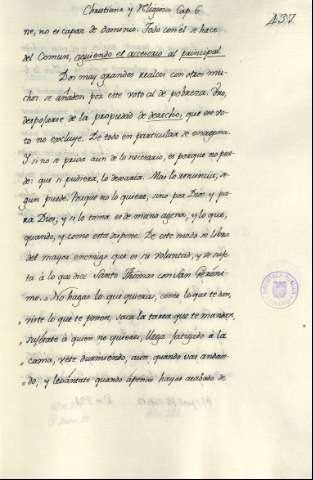 Christiana y Religiosa Cap. 6.
437
ne, no es capaz de dominio. Todo con él se hace
del Comun, siguiendo el accesorio al principal.
Dos muy grandes realces con otros mu-
chos se añaden por este voto al de pobreza. Uno,
despojarse de la propiedad de derecho, que ese vo-
to no excluye. De todo en particular se enagena.
Y si no se priva aun de lo necesario, es porque no pue-
de: que si pudiera, lo dexaria. Mas lo renuncia, se-
gun puede. Porque no lo quiere, sino por Dios y pa-
ra Dios, y si lo toma es de mano agena, y lo que,
quando, y como esta dispone. De este modo se libra
del mayor enemigo que es su voluntad, y se suje-
ta à lo que dice Santo Thomas con San Geróni-
mo. No hagas lo que quieras, come lo que te den,
viste lo que te ponen, saca la tarea que te manden,
sugetate à quien no quieras, llega fatigado à la
cama, vete durmiendo, aun quando vas andan-
do, y levántate quando apenas hayas acabado de